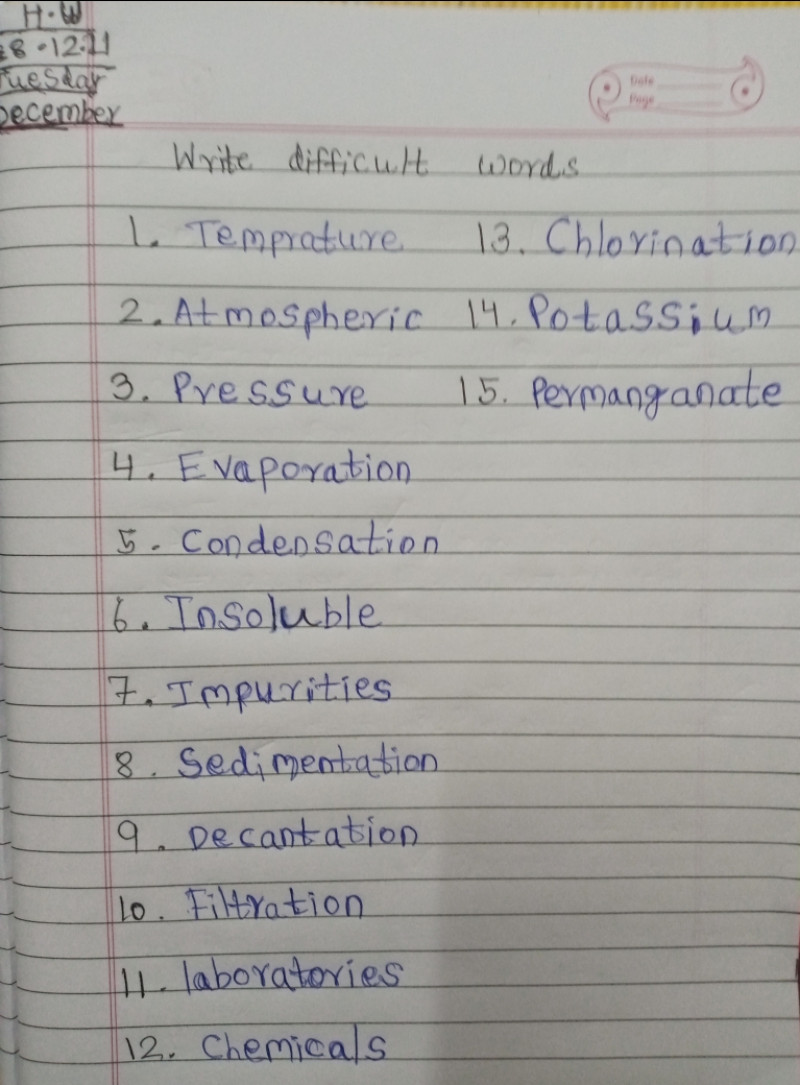 H.W
28.12.21
Tuesday
December
Date
Page
Write difficult words
1. Temprature
2. Atmospheric
3. Pressure
4. Evaporation
5. Condensation
6. Insoluble
7. Impurities
8. Sedimentation
9. Decantation
10. Filtration
11. laboratories
12. Chemicals
13. Chlorination
14. Potassium
15. Permanganate